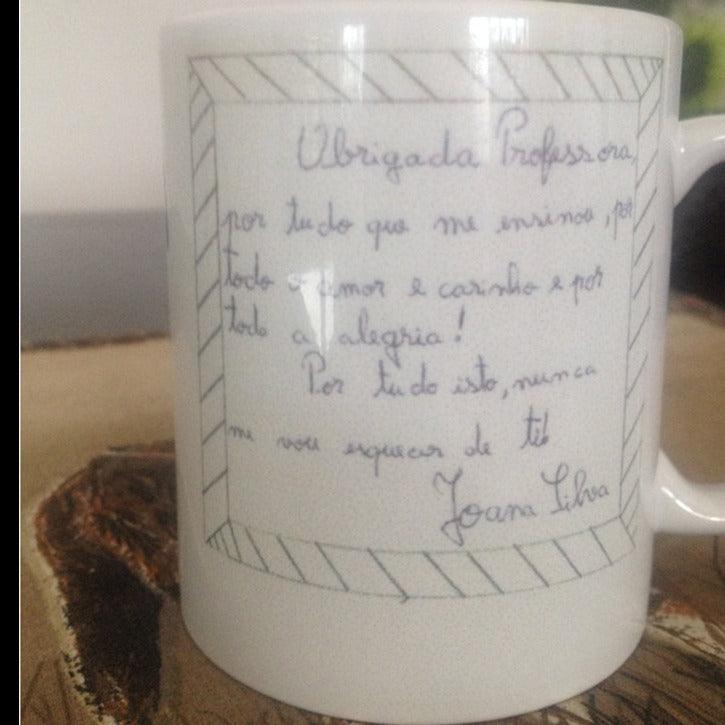 Obrigada Professora,
por tudo que me ensinou, por
todo o amor e carinho e por
toda a alegria!
Por tudo isto, nunca
me vou esquecer de ti!
Joana Silva